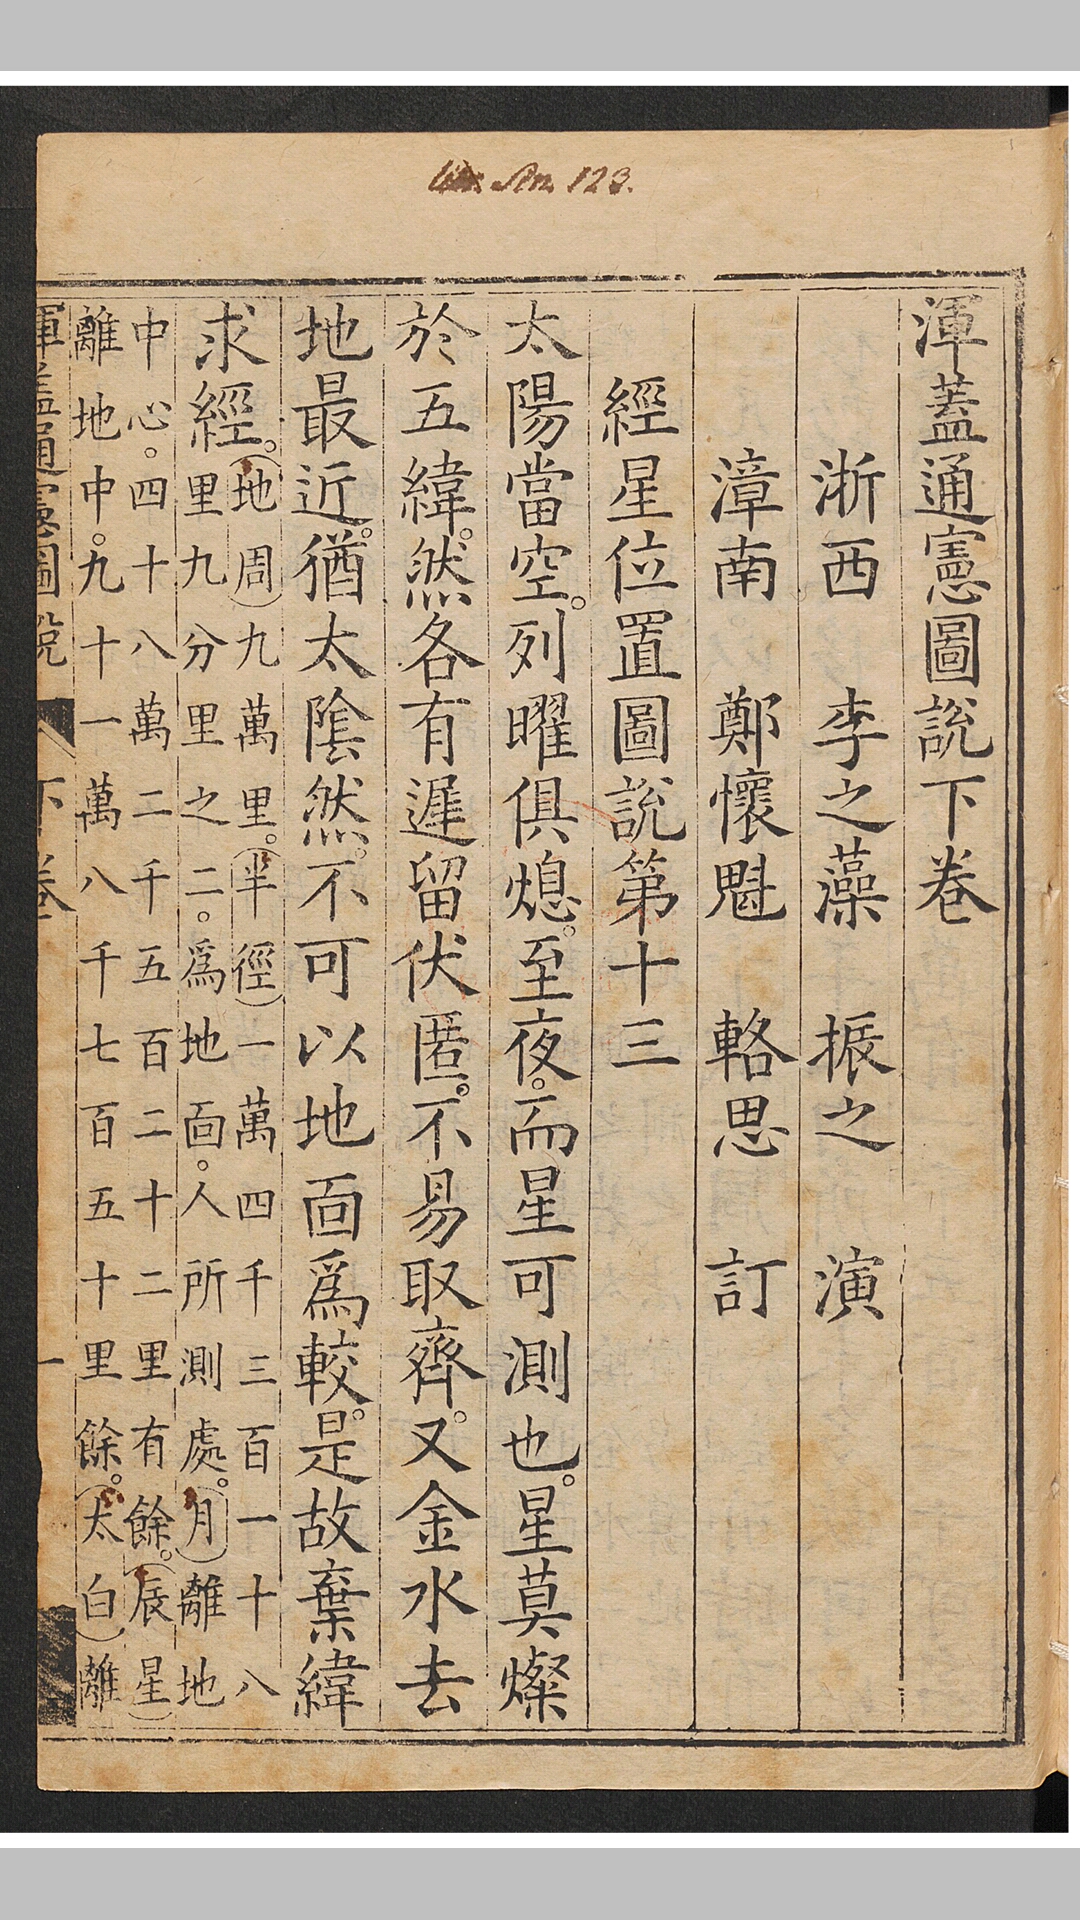 渾蓋通憲圖說下卷
浙西 李之藻 振之 演
漳南 鄭懷魁 輅思 訂
經星位置圖說第十三
太陽當空。列曜俱熄。至夜。而星可測也。星莫燦
於五緯。然各有遲留伏匿。不易取齊。又金水去
地最近。猶太陰然。不可以地面為較。是故棄緯
求經。
(地周)九萬里。(半徑)一萬四千三百一十八
里九分里之二。為地面。人所測處。(月)離地
中心。四十八萬二千五百二十二里有餘。(辰星)
離地中。九十一萬八千七百五十里餘。(太白)離
渾蓋通憲圖說 下卷 一
An. 123.